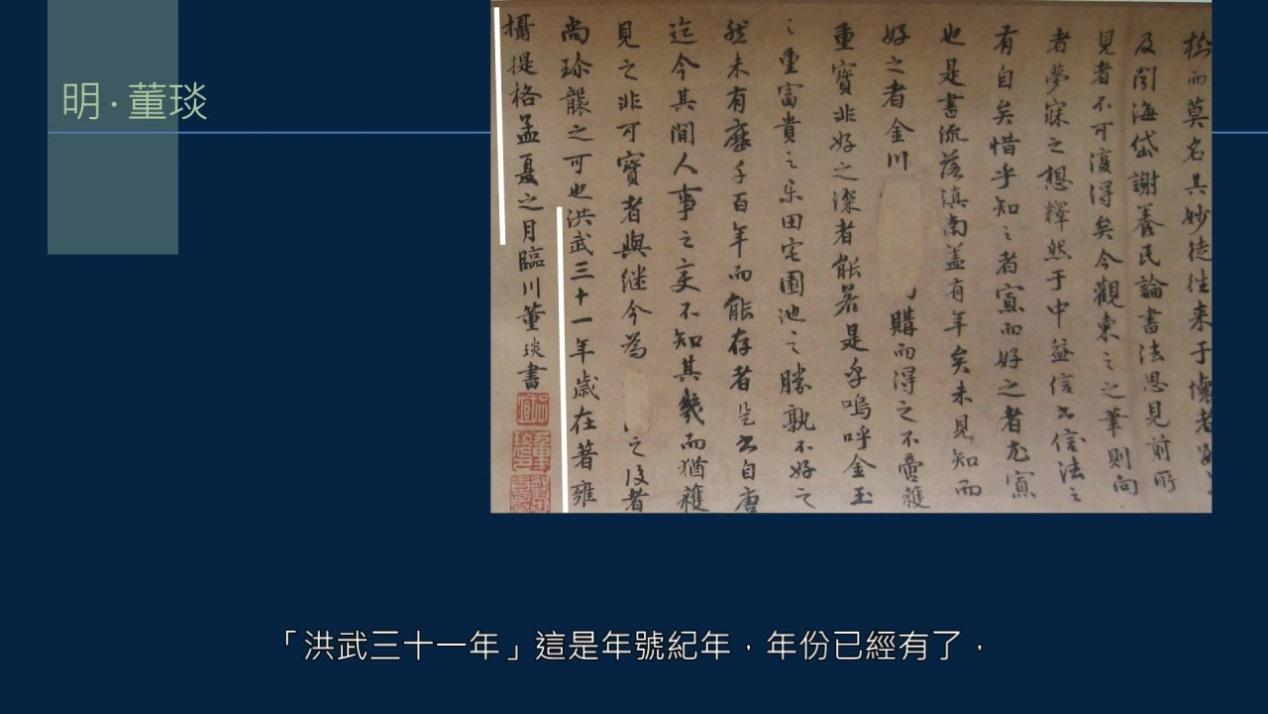 明·董琰
松而莫名其妙徒往来于懷者
及閱海岱謝養民論書法恩見前所
見者不可復得矣今觀東之之筆則向
者夢寐之想釋然于中益信書法之
有自矣惜乎知之者寡而好之者尤寡
也是書流落滇南蓋有年矣未見知而
好之者金川
購而得之不啻獲
重寶非好之深者能若是乎嗚呼金玉
之重富貴之乐田宅園池之勝孰不好之
然未有歷千百年而能存者是書自唐
迄今其間人事之变不知其幾而猶獲
見之非可寶者與继今為
之後者
尚珎襲之可也洪武三十一年歲在著雍
攝提格孟夏之月臨川董琰書
「洪武三十一年」這是年號紀年，年份已經有了，